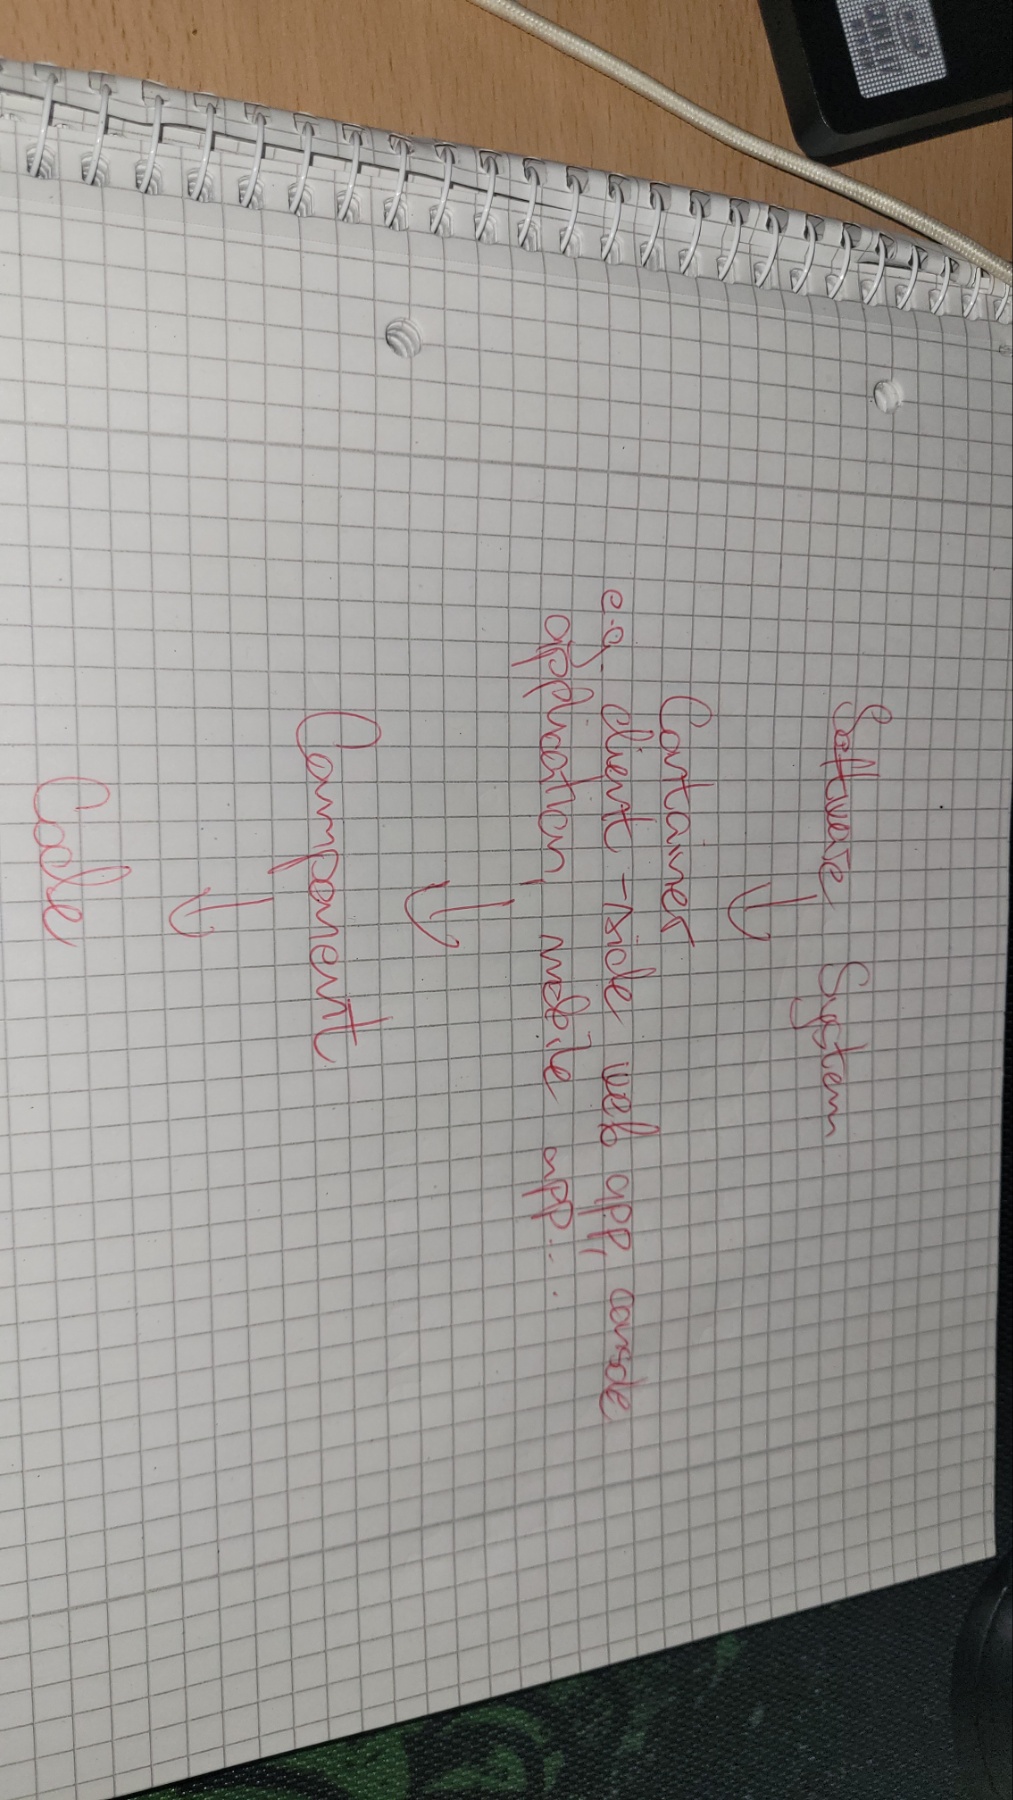 Software System
↓
Container
e.g. client-side web app, console
application, mobile app....
↓
Component
↓
Code